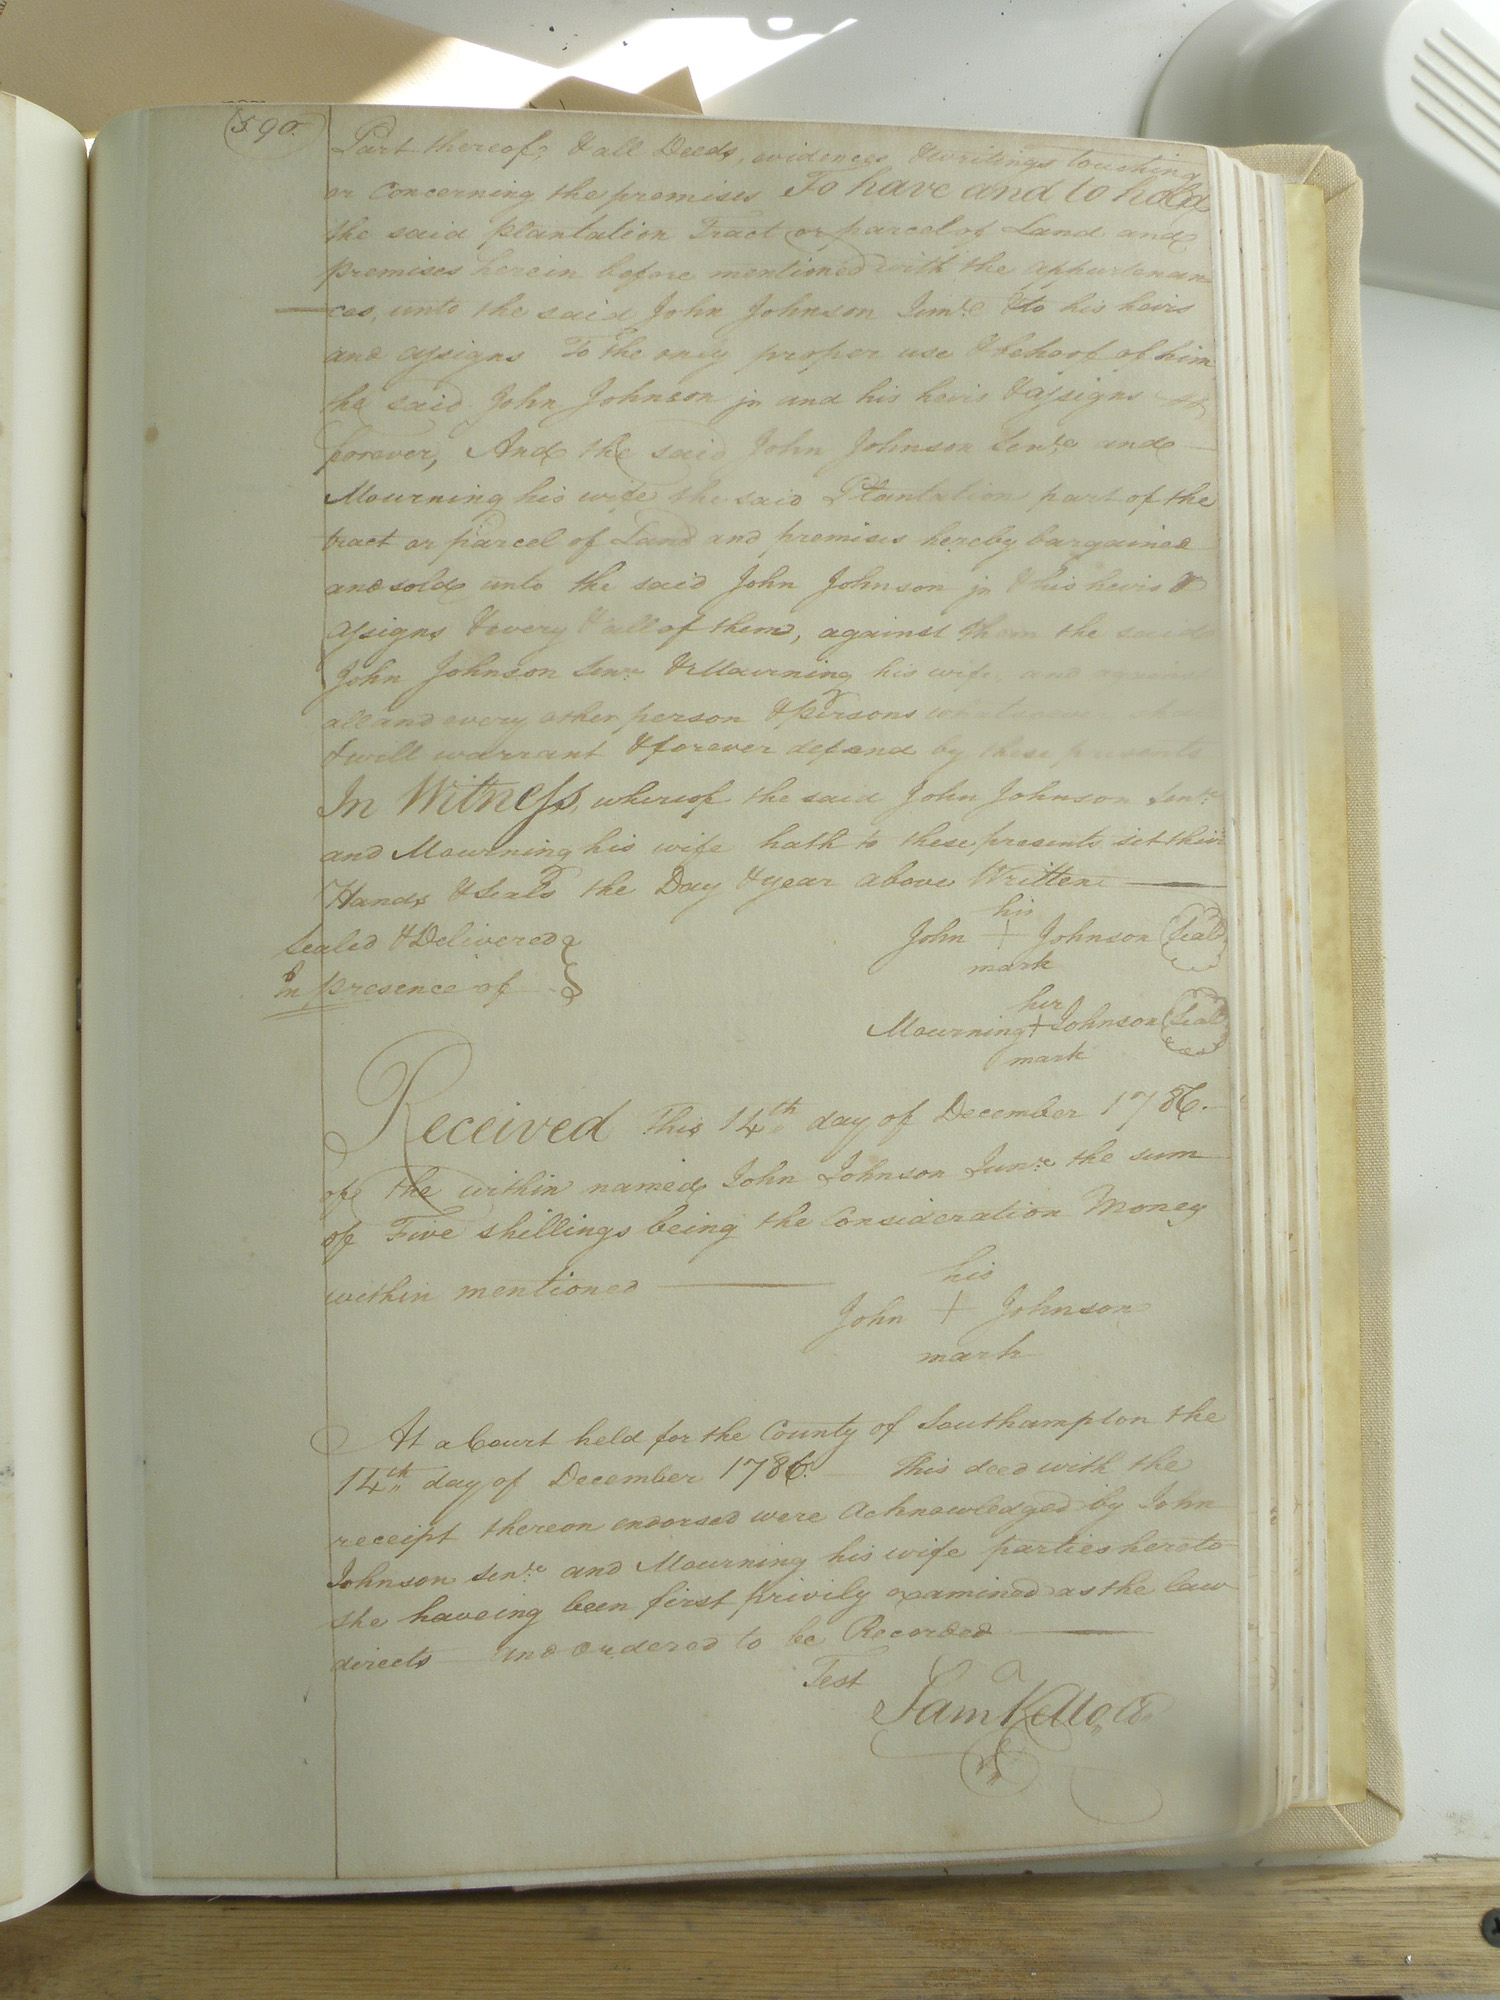 590.
Part thereof, & all Deeds, evidences & writings touching
or Concerning the premises To have and to hold
the said plantation Tract or parcel of Land and
premises herein before mentioned with the appurtenan
ces, unto the said John Johnson Junr. & to his heirs
and assigns To the only proper use & behoof of him
the said John Johnson jr and his heirs & assigns
forever, And the said John Johnson Senr. and
Mourning his wife the said Plantation part of the
tract or parcel of Land and premises hereby bargained
and sold unto the said John Johnson jr & his heirs &
assigns & every & all of them, against them the said
John Johnson Senr. & Mourning his wife, and against
all and every other person & persons whatsoever shall
& will warrant & forever defend by these presents
In Witness, whereof the said John Johnson Senr.
and Mourning his wife hath to these presents set their
Hands & Seals the Day & year above Written
his
Sealed & Delivered John + Johnson Seal
mark
In presence of
her
Mourning + Johnson Seal
mark
Received this 14th day of December 1786.
of the within named John Johnson Junr. the sum
of Five shillings being the Consideration Money
within mentioned
his
John + Johnson
mark
At a Court held for the County of Southampton the
14th day of December 1786. This deed with the
receipt thereon endorsed were Acknowledged by John
Johnson Senr. and Mourning his wife parties hereto
she haveing been first privily examined as the law
directs and ordered to be Recorded
Test
Sam Kello, Cl.